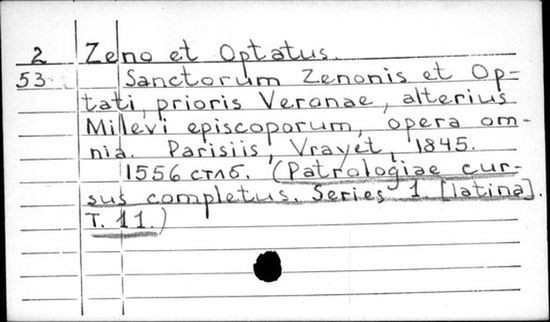 2 Zeno et Optatus.
53 Sanctorum Zenonis et Op-
tati, prioris Veronae, alterius
Milevi episcoporum, opera om-
nia. Parisiis, Vrayet, 1845.
1556 стлб. (Patrologiae cur-
sus completus. Series 1. [latina].
T. 11.)